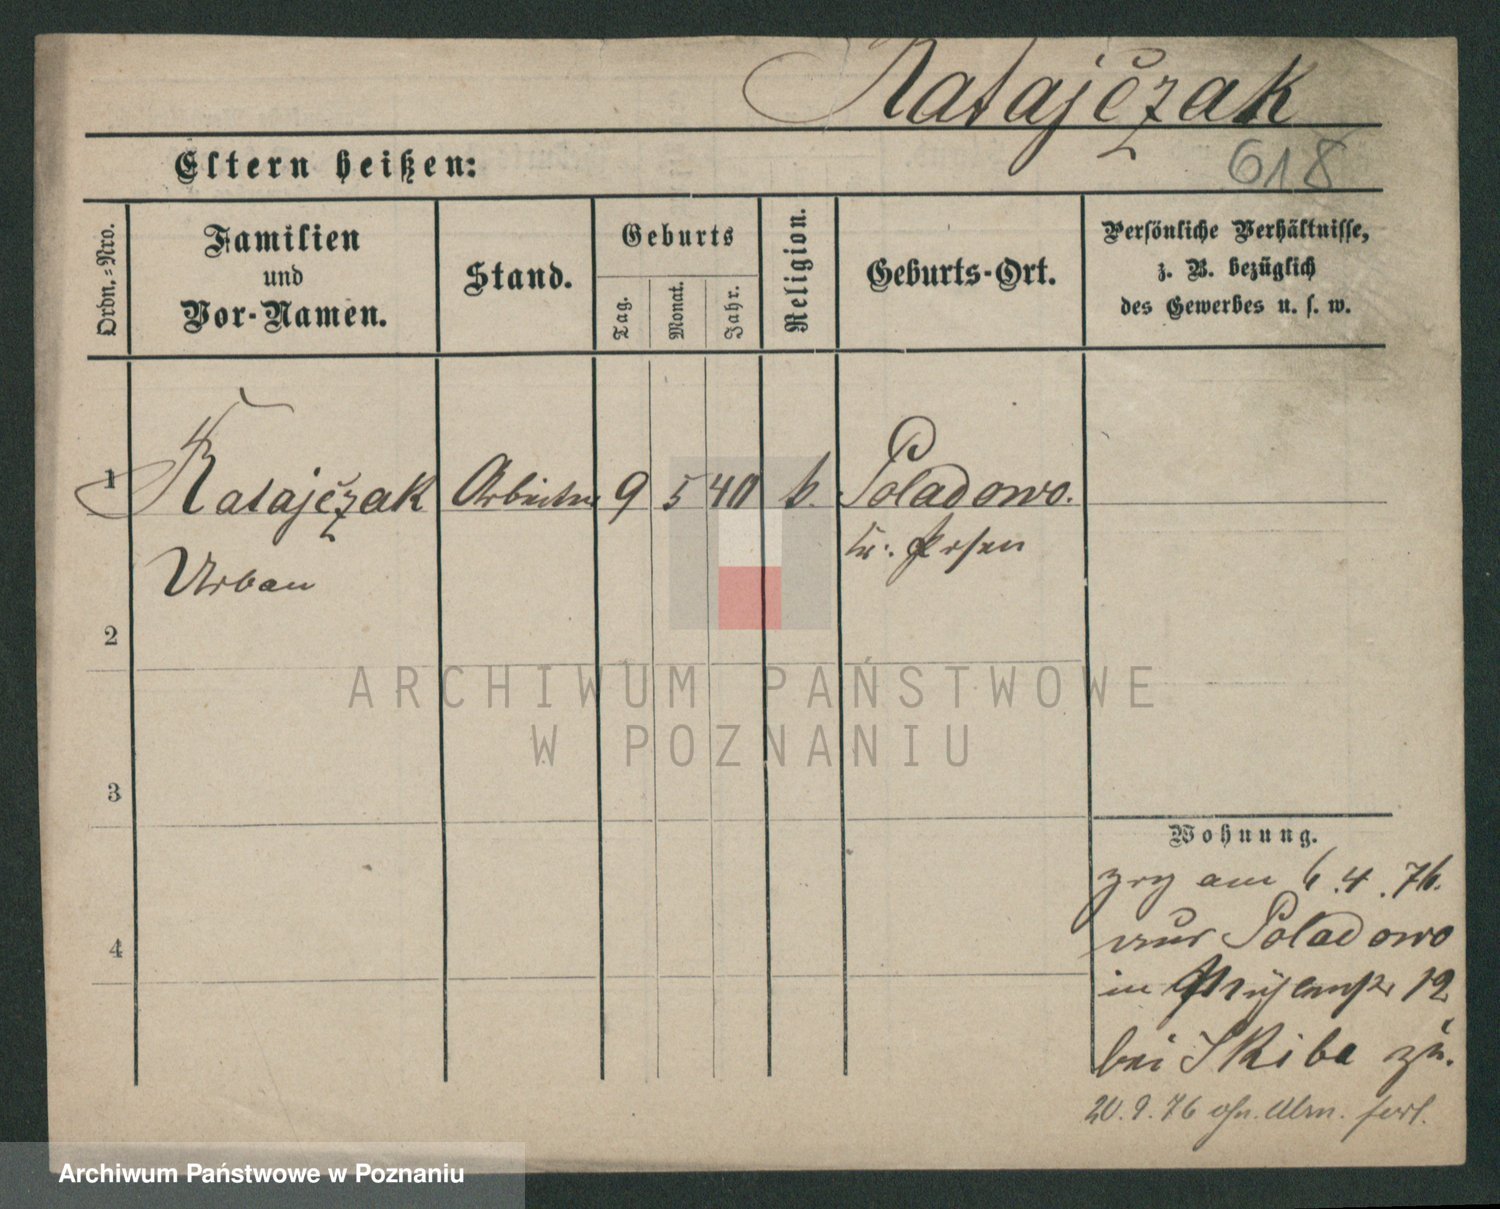 Ratajčzak
618
Eltern heißen:
Ordn.=Nro.
Familien
und
Vor-Namen.
Stand.
Geburts
Tag.
Monat.
Jahr.
Religion.
Geburts-Ort.
Persönliche Verhältnisse,
z. B. bezüglich
des Gewerbes u. s. w.
1
Ratajčzak
Arbeiter
9
5
40
k.
Poladowo.
Kr. Posen
Urban
2
3
4
Wohnung.
zog am 6.4.76.
aus Poladowo
in 12
bei Skiba zu.
20.9.76 ohn. Abm. fort.
ARCHIWUM PAŃSTWOWE
W POZNANIU
Archiwum Państwowe w Poznaniu